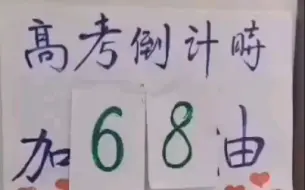 高考倒计时
加68油